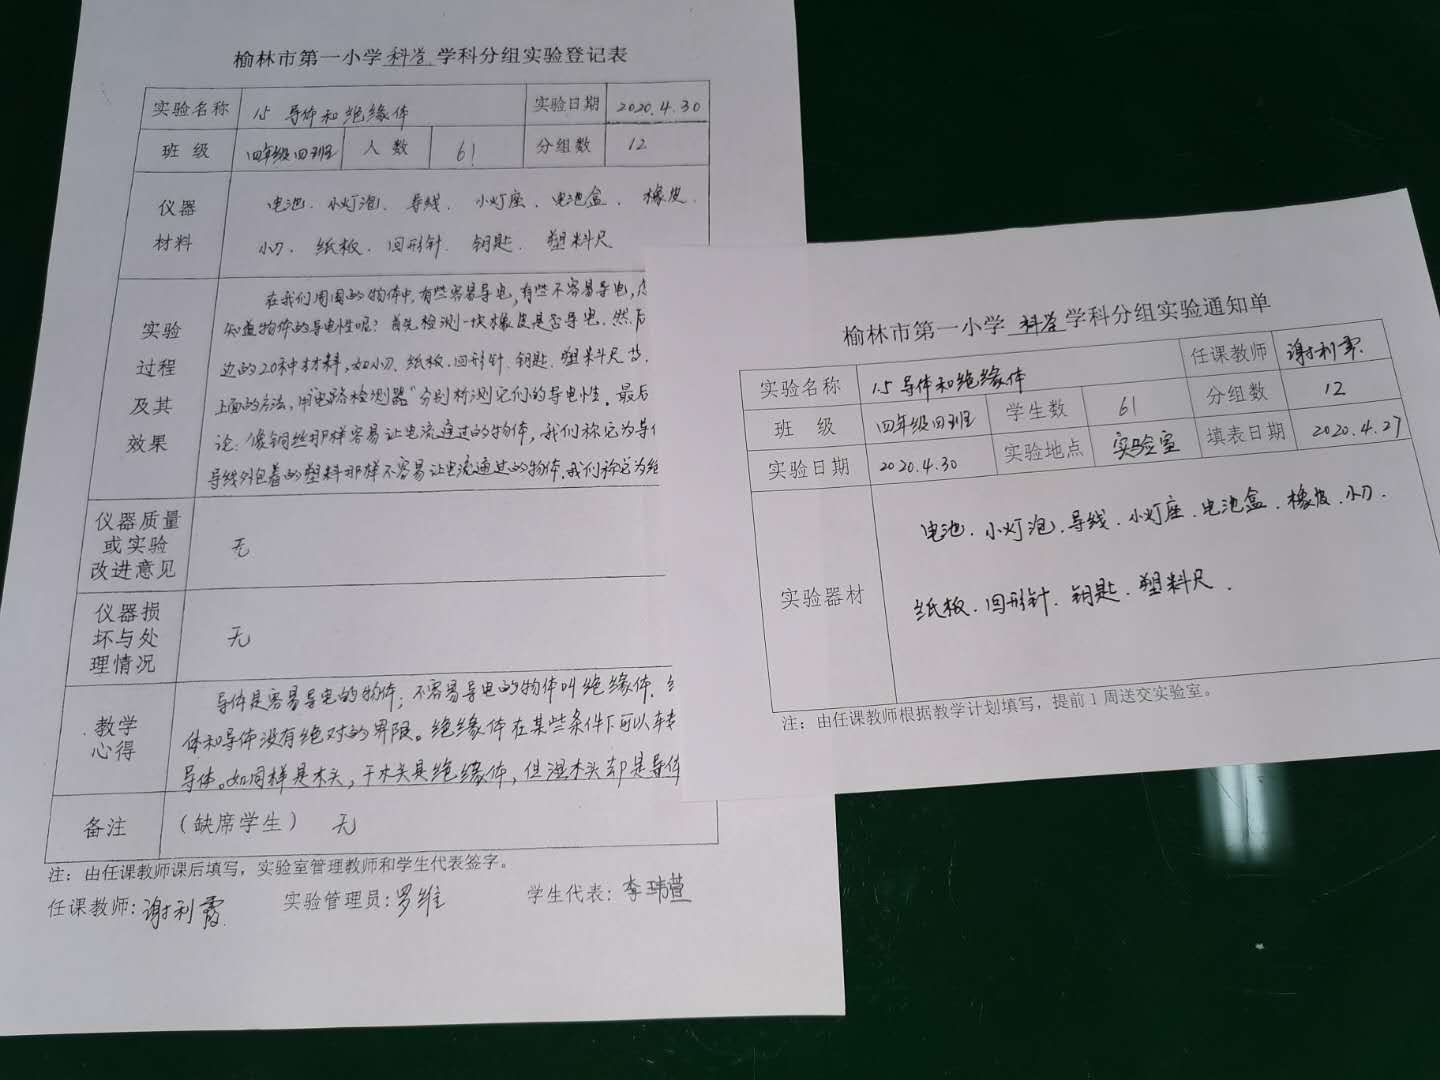 榆林市第一小学科学学科分组实验登记表
实验名称 1.5 导体和绝缘体 实验日期 2020.4.30
班 级 四年级四班 人 数 61 分组数 12
仪器
材料
电池、小灯泡、导线、小灯座、电池盒、橡皮、
小刀、纸板、回形针、钥匙、塑料尺
实验
过程
及其
效果
在我们周围的物体中,有些容易导电,有些不容易导电,
知道物体的导电性呢?首先检测一块橡皮是否导电.然后
边的20种材料,如小刀、纸板、回形针、钥匙、塑料尺
上面的方法,用"电路检测器"分别检测它们的导电性。最后
论:像铜丝那样容易让电流通过的物体,我们称它为导
导线外包着的塑料那样不容易让电流通过的物体,我们称它为绝
仪器质量
或实验
改进意见
无
仪器损
坏与处
理情况
无
教学
心得
导体是容易导电的物体;不容易导电的物体叫绝缘体.
体和导体没有绝对的界限。绝缘体在某些条件下可以转
导体。如同样是木头,干木头是绝缘体,但湿木头却是导体
备注 (缺席学生) 无
注:由任课教师课后填写,实验室管理教师和学生代表签字。
任课教师:谢利霞 实验管理员:罗维 学生代表:李玮萱
榆林市第一小学 科学 学科分组实验通知单
实验名称 1.5 导体和绝缘体 任课教师 谢利霞
班 级 四年级四班 学生数 61 分组数 12
实验日期 2020.4.30 实验地点 实验室 填表日期 2020.4.27
实验器材
电池、小灯泡、导线、小灯座、电池盒、橡皮、小刀、
纸板、回形针、钥匙、塑料尺.
注:由任课教师根据教学计划填写,提前1周送交实验室。